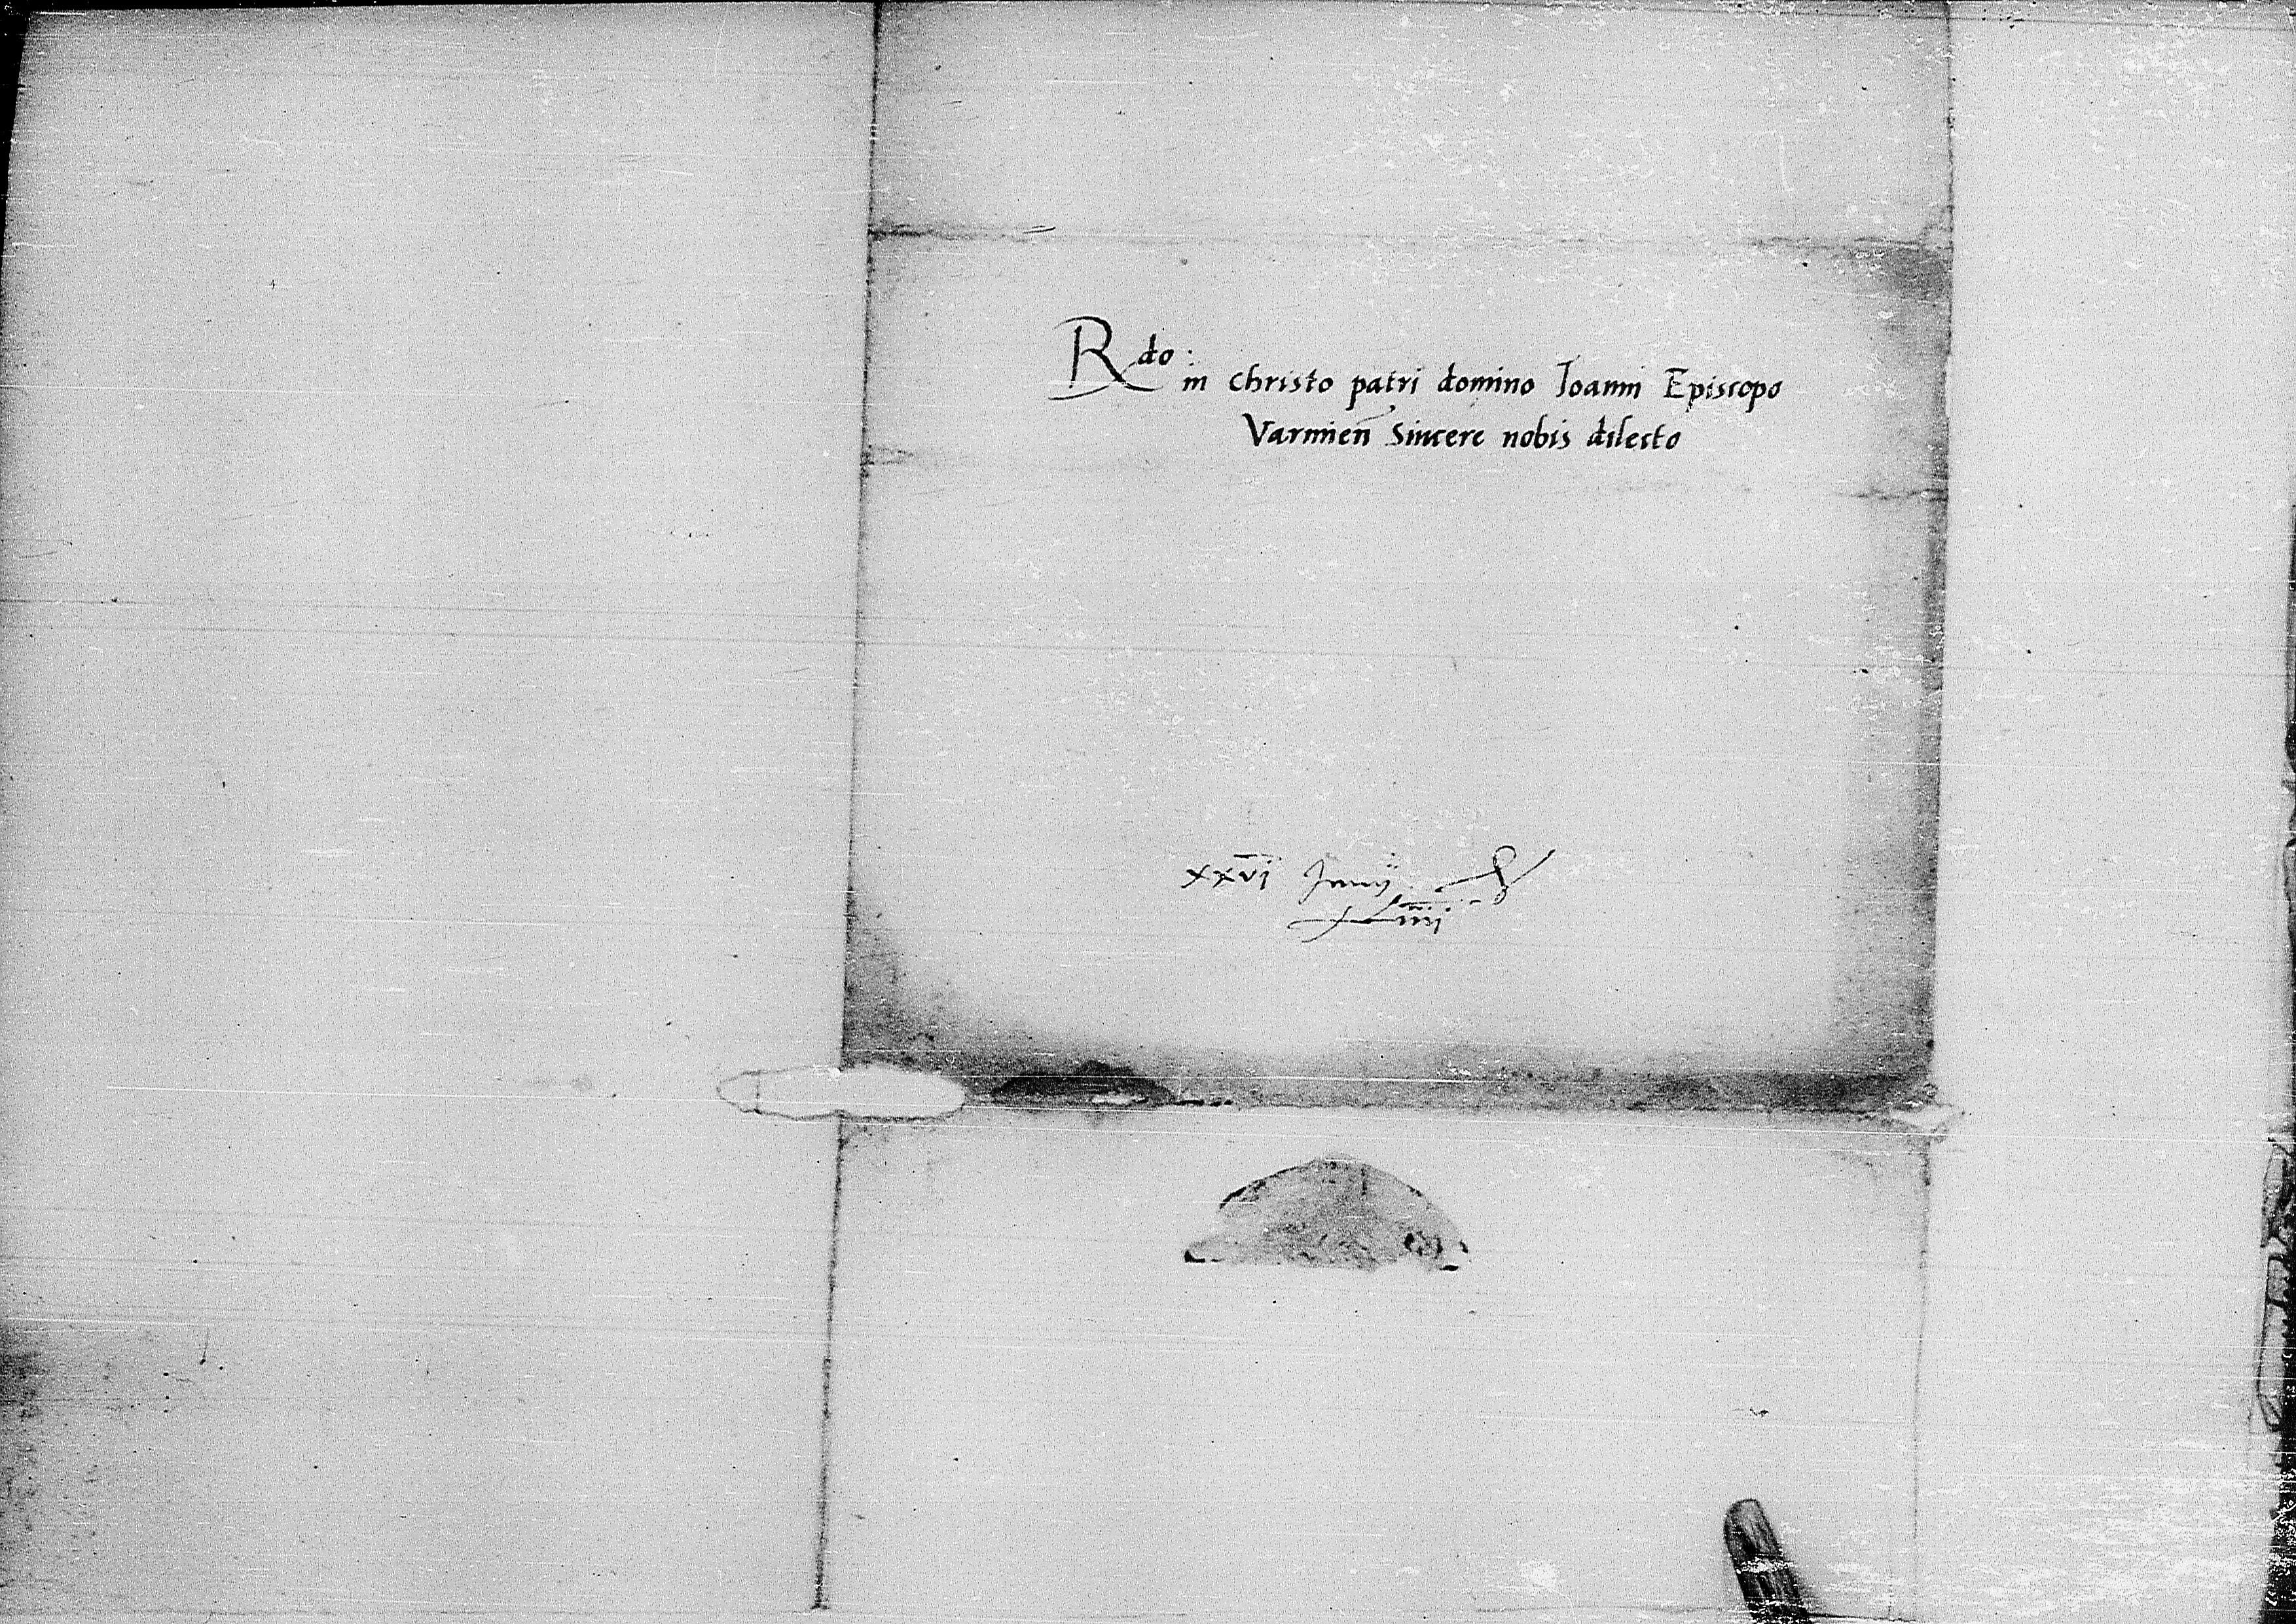 Rdo: in christo patri domino Ioanni Episcopo
Varmień Sincere nobis dilecto
xxvi